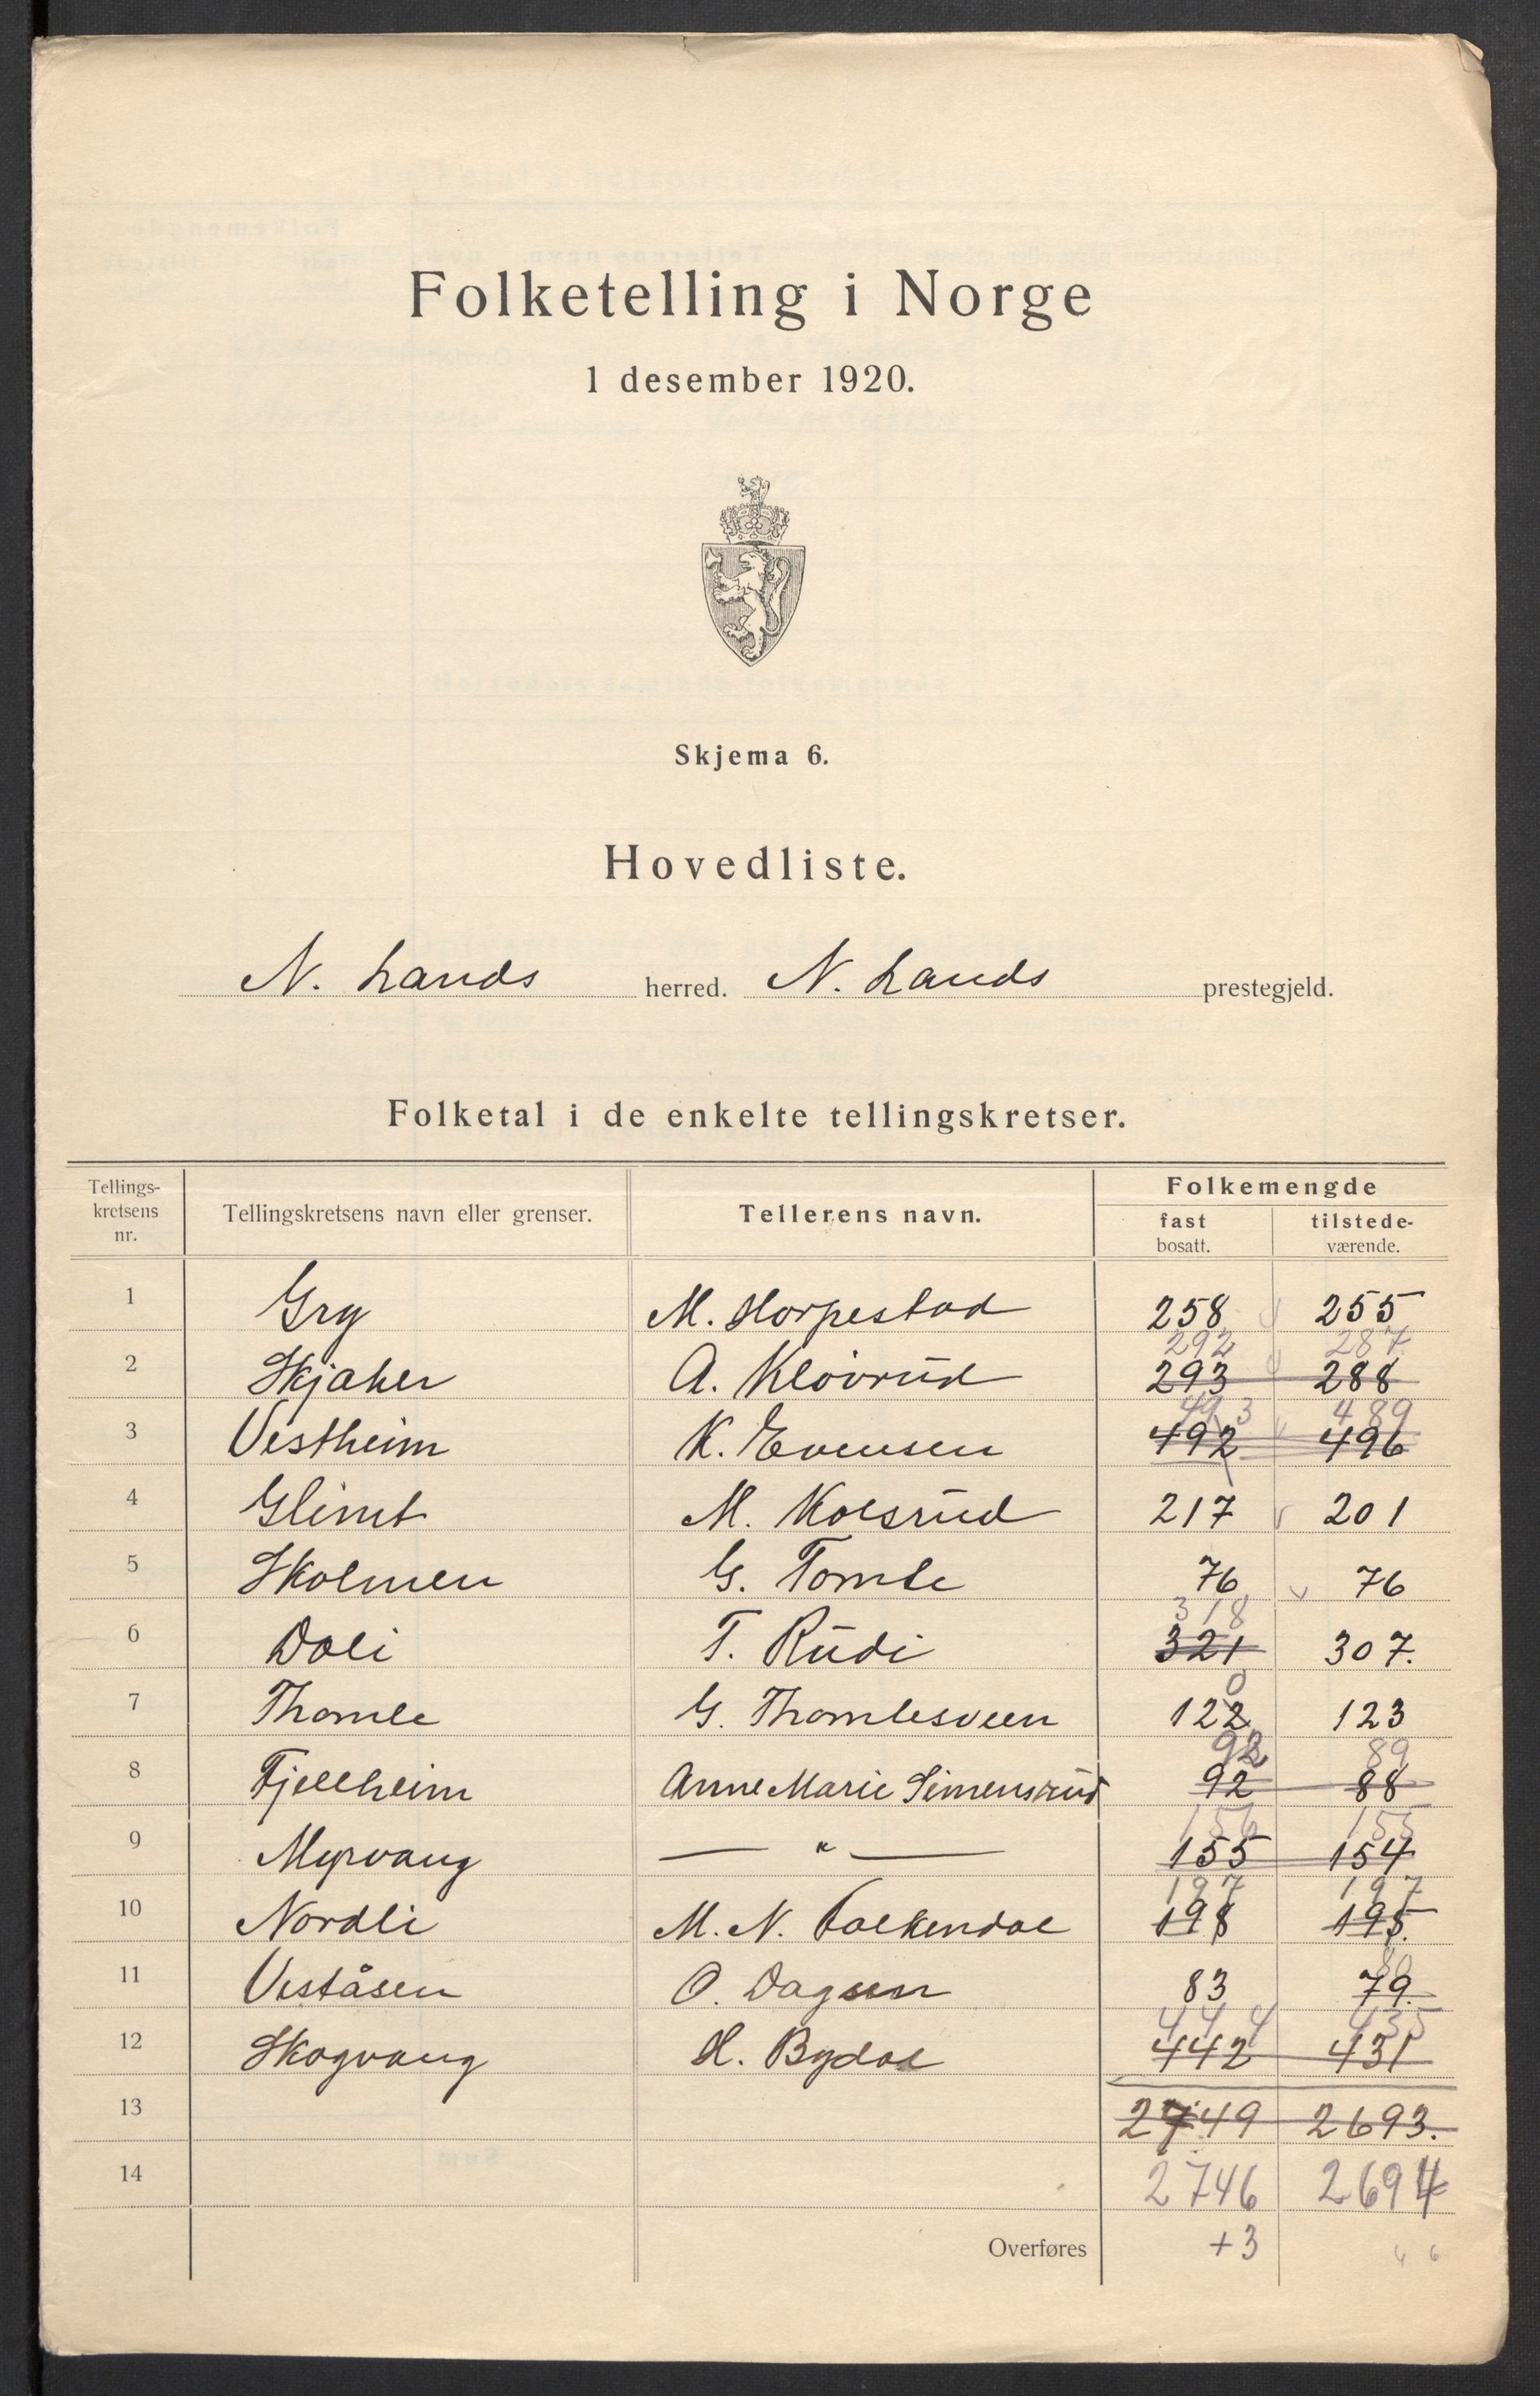 Folketelling i Norge
1 desember 1920.
Skjema 6.
Hovedliste.
N. Lands herred. N. Lands prestegjeld.
Folketal i de enkelte tellingskretser.
Tellings-
kretsens
nr.
Tellingskretsens navn eller grenser.
Tellerens navn.
Folkemengde
fast
bosatt.
tilstede-
værende.
1 Gry M. Horpestad 258 255
292 287
2 Skjaker A. Kløvrud 293 288
493 489
3 Vestheim K. Evensen 492 496
4 Glimt M. Kolsrud 217 201
5 Skolmen G. Tomle 76 76
318
6 Doli T. Rudi 321 307.
0
7 Thomle G. Thomlesveen 122 123
92 89
8 Fjellheim Anne Marie Simensrud 92 88
156 155
9 Myrvang — " — 155 154
197 197
10 Nordli M. N. 198 195.
80
11 Veståsen O. Dagsen 83 79.
444 435
12 Skogvang H. Bydal 442 431
13 2749 2693.
14 2746 2694
Overføres +3